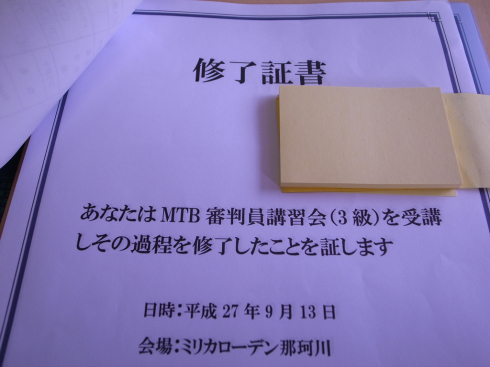 修了証書
あなたは MTB 審判員講習会（3 級）を受講
しその過程を修了したことを証します
日時：平成 27 年 9 月 13 日
会場：ミリカローデン那珂川